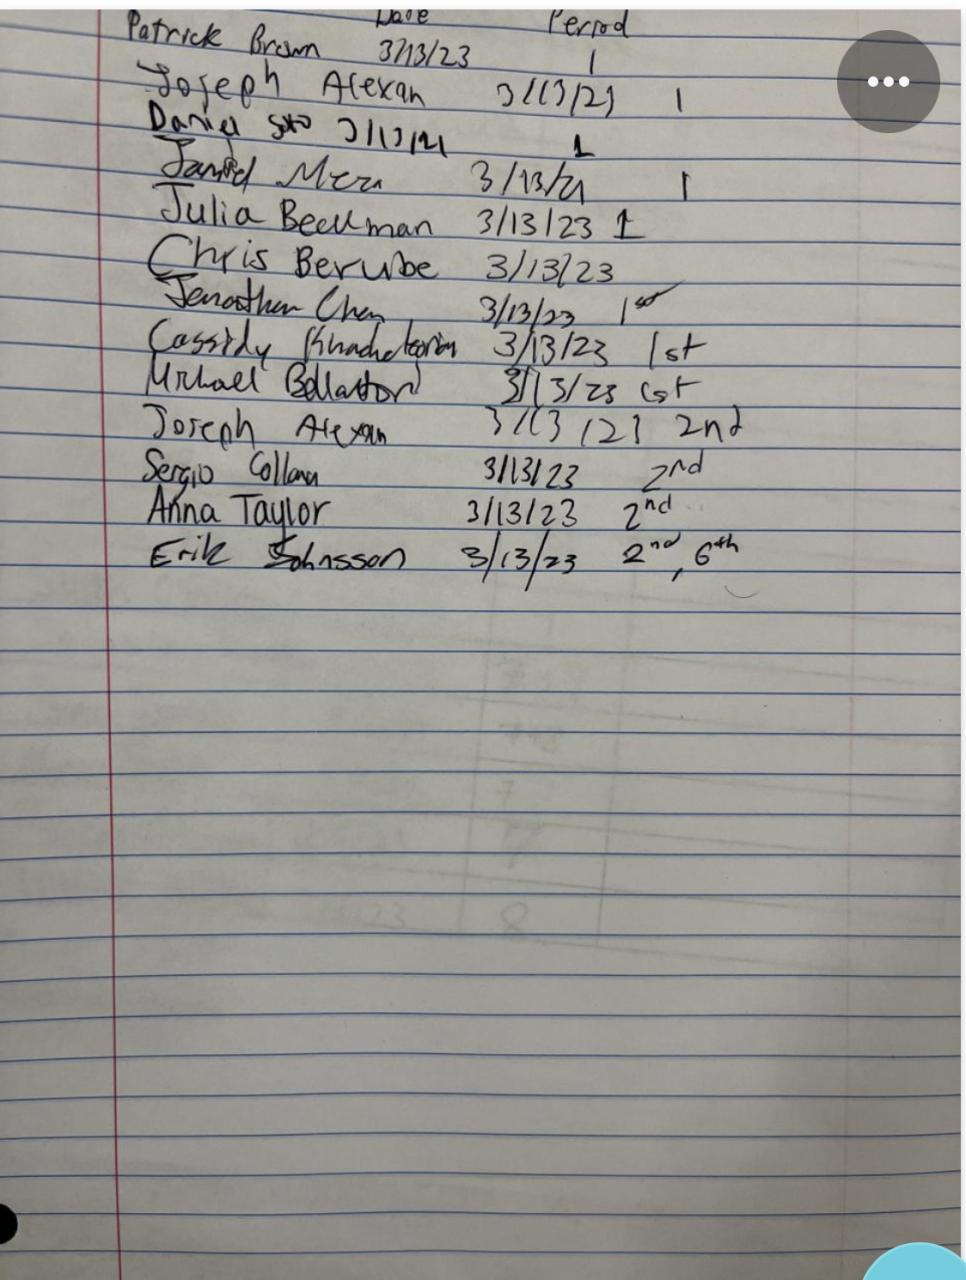 Date Period
Patrick Brown 3/13/23 1
Joseph Alexan 3/13/23 1
Daniel Soto 3/13/21 1
3/13/21 1
Julia Beckman 3/13/23 1
Chris Berube 3/13/23
Chen 3/13/23 1st
Cassidy 3/13/23 1st
Michael 3/13/23 1st
Joseph Alexan 3/13/23 2nd
Sergio 3/13/23 2nd
Anna Taylor 3/13/23 2nd
Erik Johnsson 3/13/23 2nd, 6th